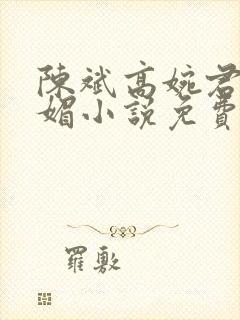 陳斌高婉君
媚小説免費
羅敷